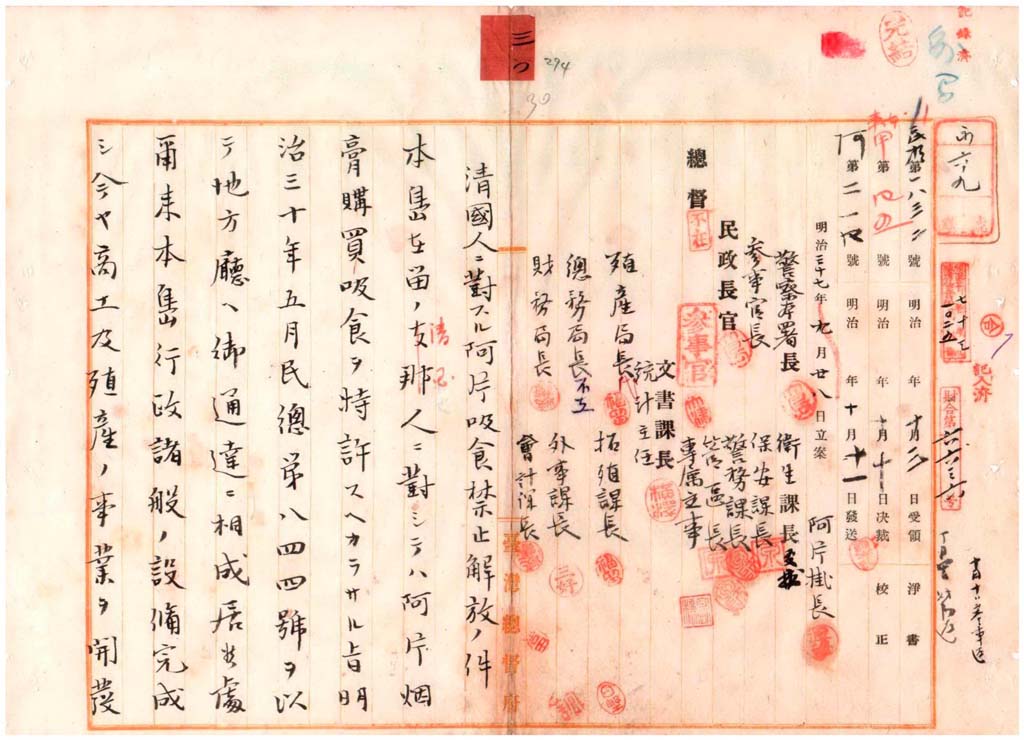 記錄濟
完結
三 294
30
永六九
七十三
一〇二五
合
記入濟
財合第六六三一號
第一八三二號 明治 年十月三日受領 淨書
甲第 號 明治 年十月十日决裁 校正
阿第二一四號 明治 年十月十一日發送
明治三十七年九月廿八日立案 阿片掛長
警察本署長 衛生課長
參事官長 保安課長
參事官 警務課長
民政長官
專屬主事
總督 不在
文書課長
統計主任
殖產局長 拓殖課長
總務局長不在 外事課長
財務局長 會計課長
臺灣總督府
清國人ニ對スル阿片吸食禁止解放ノ件
本島在留ノ支那人ニ對シテハ阿片烟
清國
膏購買吸食ヲ特許スヘカラサル旨明
治三十年五月民總第八四四號ヲ以
テ地方廳ヘ御通達ニ相成居候處
爾來本島行政諸般ノ設備完成
シ今ヤ商工及殖產ノ事業ヲ開發